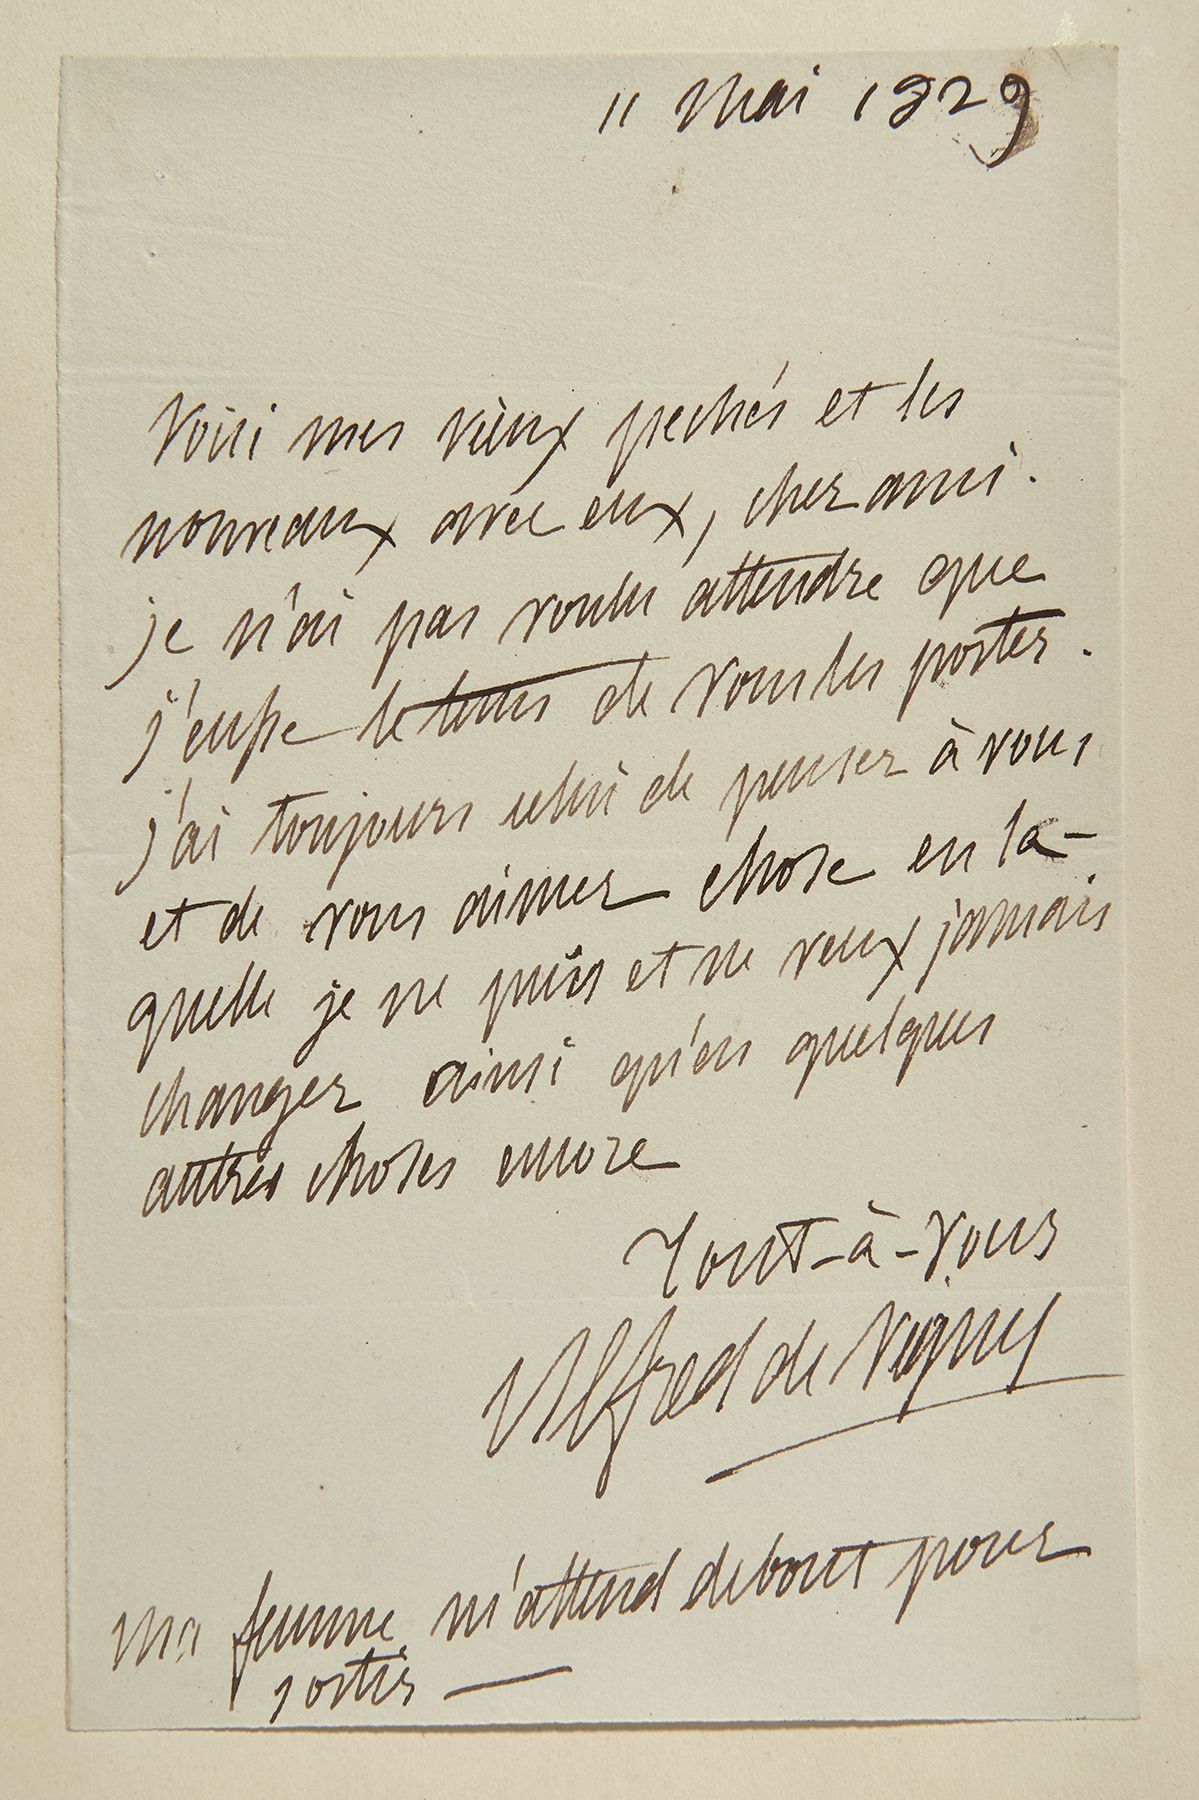 11 Mai 1829
Voici mes vieux pechés et les
nouveaux avec eux, cher ami.
je n'ai pas voulu attendre que
j'eusse le tems de vous les porter.
j'ai toujours celui de penser à vous
et de vous aimer chose en la-
quelle je ne puis et ne veux jamais
changer ainsi qu'en quelques
autres choses encore
Tout-à-vous
Alfred de Vigny
Ma femme m'attend debout pour
sortir —